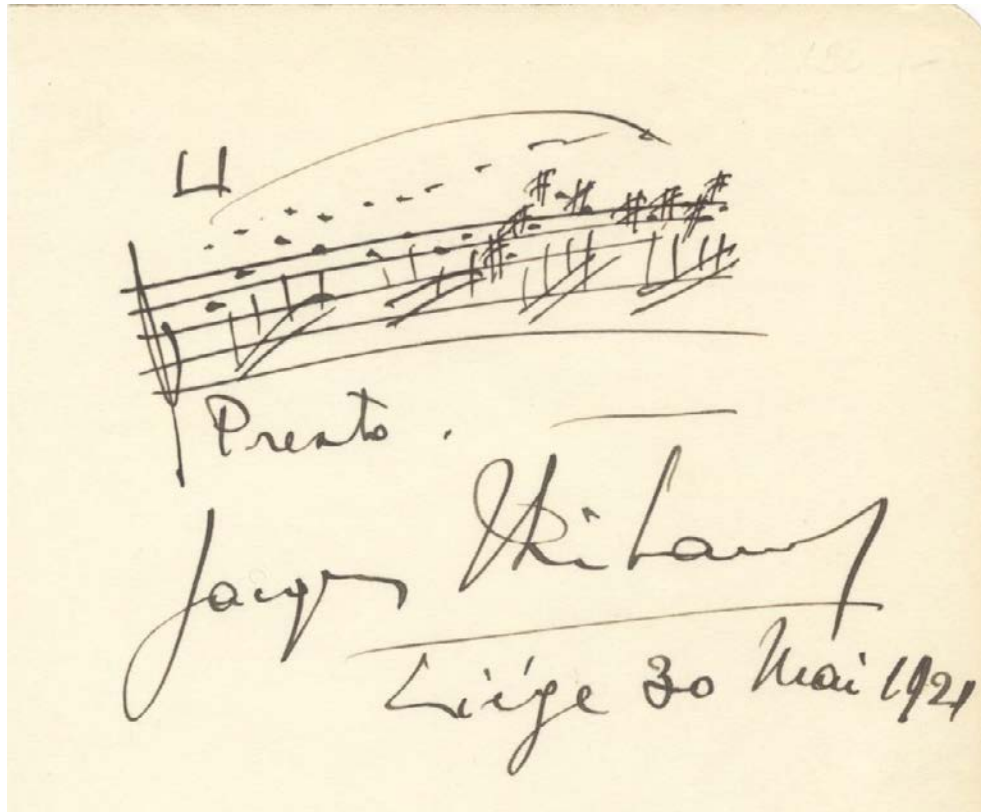 Presto.
Jacques Thibaud
Liége 30 Mai 1921